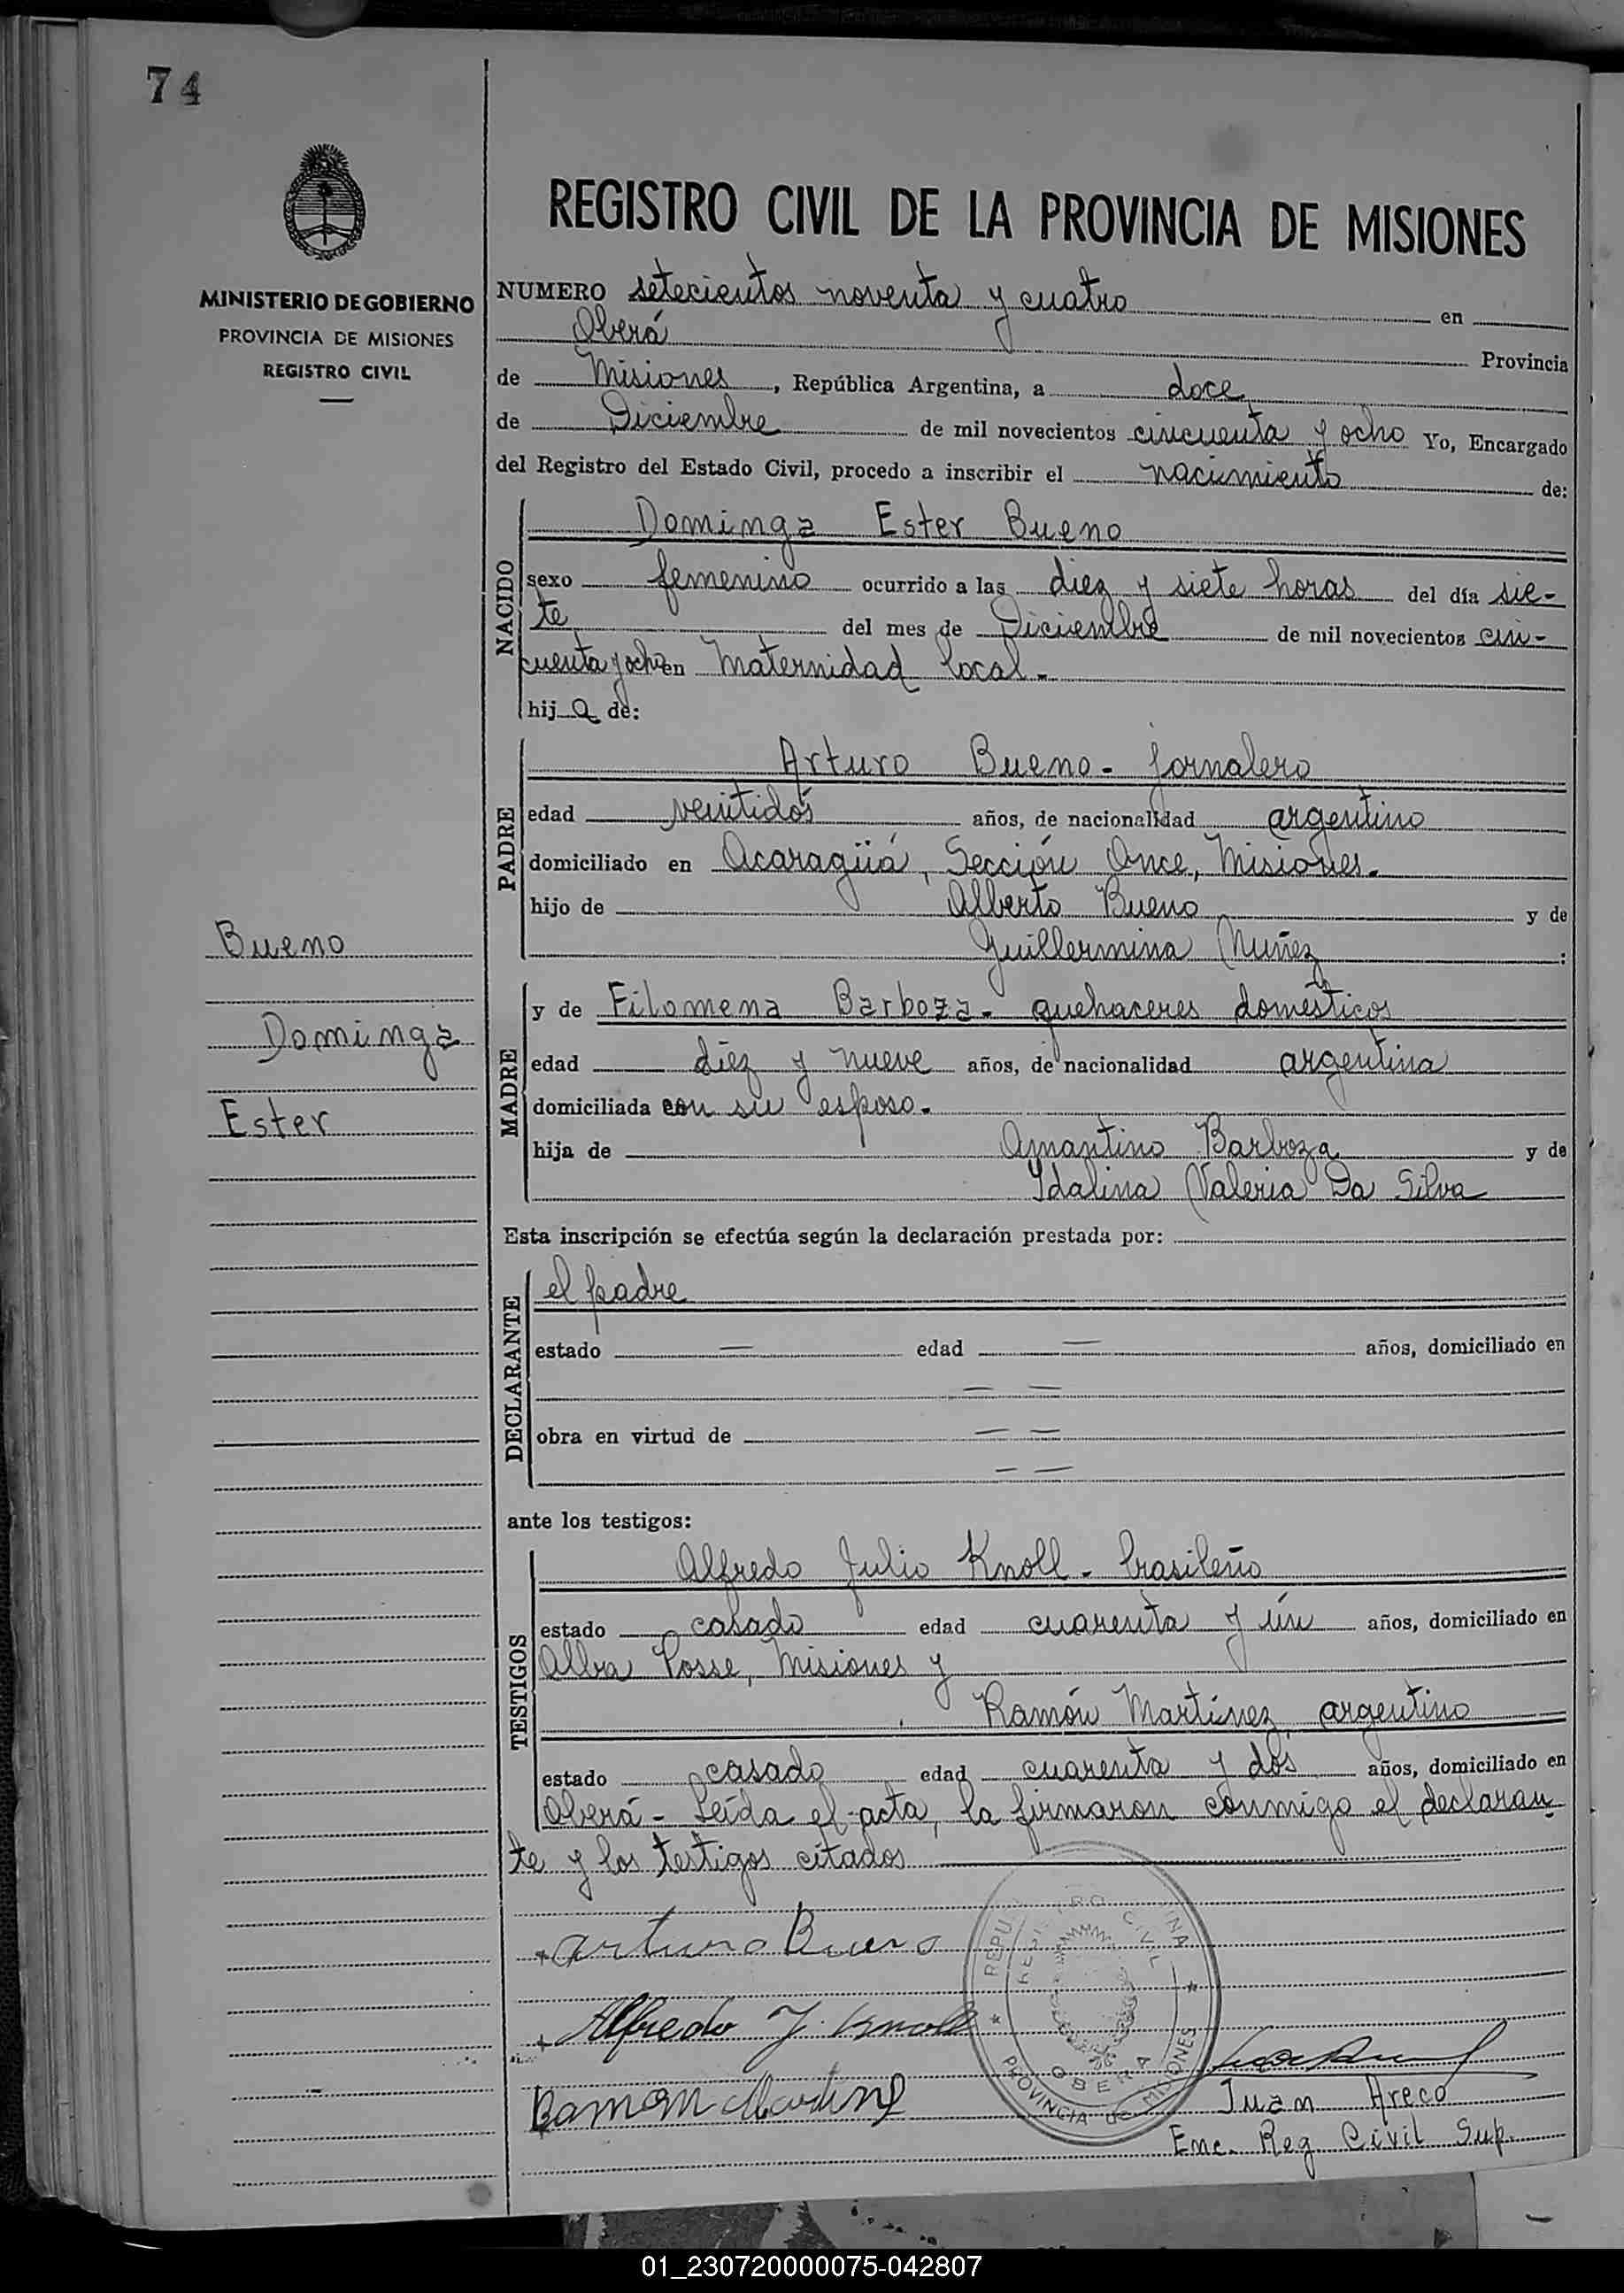 74
MINISTERIO DE GOBIERNO
PROVINCIA DE MISIONES
REGISTRO CIVIL
REGISTRO CIVIL DE LA PROVINCIA DE MISIONES
NUMERO setecientos noventa y cuatro en
Oberá Provincia
de Misiones, República Argentina, a doce
de Diciembre de mil novecientos cincuenta y ocho Yo, Encargado
del Registro del Estado Civil, procedo a inscribir el nacimiento de:
NACIDO
Dominga Ester Bueno
sexo femenino ocurrido a las diez y siete horas del día sie-
te del mes de Diciembre de mil novecientos cin-
cuenta y ocho en Maternidad local.-
hija de:
PADRE
Arturo Bueno - jornalero
edad veintidós años, de nacionalidad argentino
domiciliado en Acaragüá, Sección Once, Misiones.
hijo de Alberto Bueno y de
Guillermina Nuñez :
MADRE
y de Filomena Barboza - quehaceres domésticos
edad diez y nueve años, de nacionalidad argentina
domiciliada con su esposo.
hija de Amantino Barboza y de
Ydalina Valeria Da Silva
Esta inscripción se efectúa según la declaración prestada por:
DECLARANTE
el padre
estado — edad — años, domiciliado en
— —
obra en virtud de — —
— —
ante los testigos:
TESTIGOS
Alfredo Julio Knoll - brasileño
estado casado edad cuarenta y ún años, domiciliado en
Alba Posse, Misiones y
Ramón Martínez, argentino
estado casado edad cuarenta y dos años, domiciliado en
Oberá - Leída el acta, la firmaron conmigo el declaran
te y los testigos citados
Bueno
Dominga
Ester
Arturo Bueno
Alfredo J. Knoll
Ramon Martinez
REGISTRO CIVIL
OBERA
PROVINCIA de MISIONES
Juan Areco
Enc. Reg Civil Sup.
01_230720000075-042807